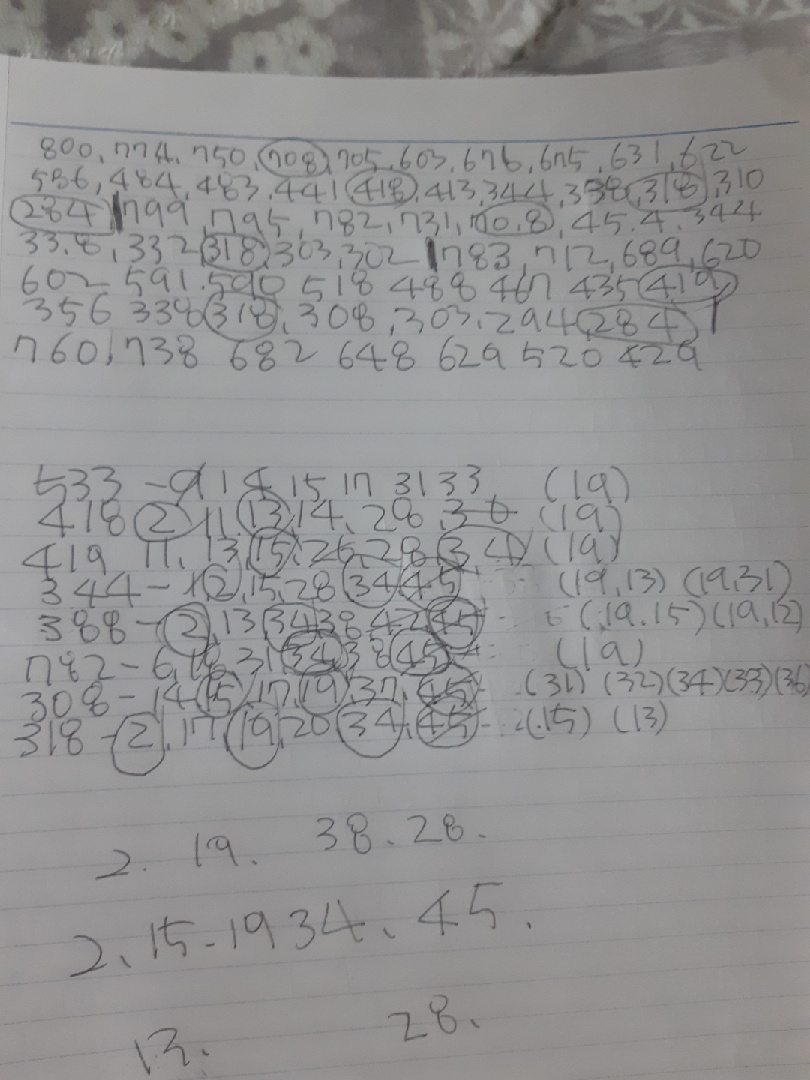 800, 774, 750, 708, 705, 603, 676, 675, 631, 622
536, 484, 483, 441 418, 413, 344, 338, 318, 310
284 | 799, 795, 782, 731, 70.8, 45.4, 344
33.8, 332 318, 303, 302 | 783, 712, 689, 620
602 591. 590 518 488 467 435 419
356 338 318, 308, 303. 294 284 |
760, 738 682 648 629 520 429
533 - 9 14 15 17 31 33 (19)
418 2 11 13 14. 28, 36 (19)
419 11, 13, 15, 26, 28 34 (19)
344 - 12, 15, 28 34 45 (19, 13) (19, 31)
388 - 2, 13, 34 38, 42 45 (19. 15) (19, 12)
782 - 6, 18, 31 34 38 45 (19)
308 - 14 15, 17, 19, 37, 45 (31) (32) (34) (33) (36)
318 - 2, 17, 19, 20 34, 45 - (15) (13)
2. 19. 38. 28.
2. 15 - 19 34. 45.
13. 28.